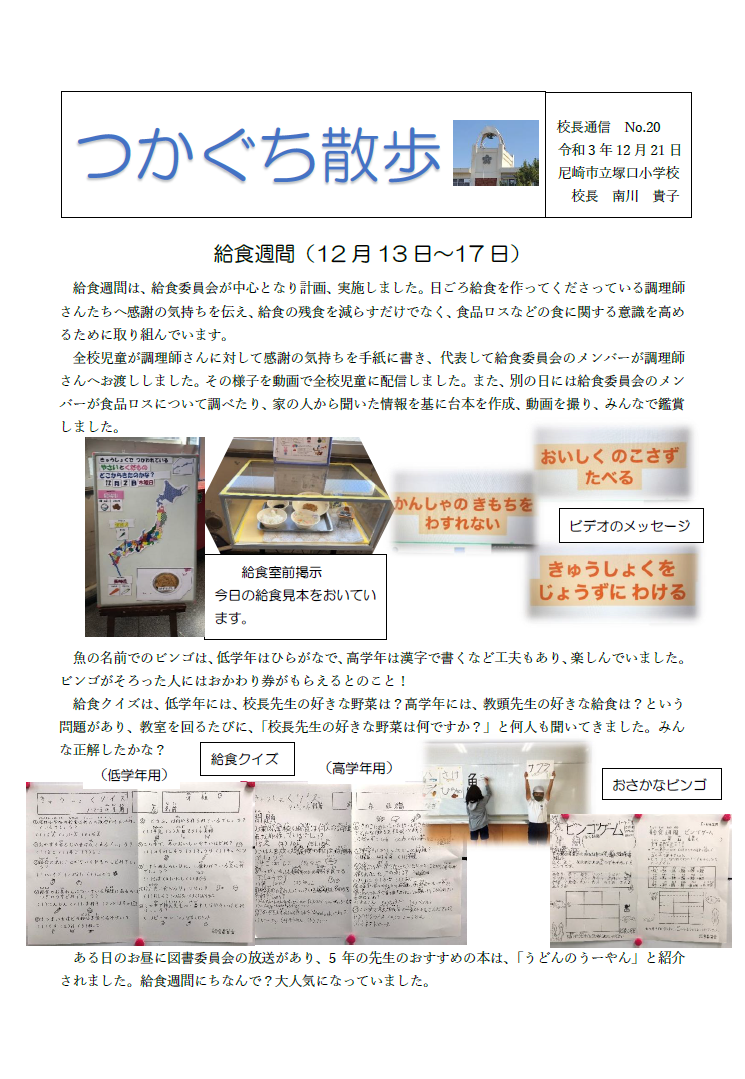 つかぐち散歩
校長通信　No.20
令和3年12月21日
尼崎市立塚口小学校
校長　南川　貴子
給食週間（12月13日～17日）
給食週間は、給食委員会が中心となり計画、実施しました。日ごろ給食を作ってくださっている調理師
さんたちへ感謝の気持ちを伝え、給食の残食を減らすだけでなく、食品ロスなどの食に関する意識を高め
るために取り組んでいます。
全校児童が調理師さんに対して感謝の気持ちを手紙に書き、代表して給食委員会のメンバーが調理師
さんへお渡ししました。その様子を動画で全校児童に配信しました。また、別の日には給食委員会のメン
バーが食品ロスについて調べたり、家の人から聞いた情報を基に台本を作成、動画を撮り、みんなで鑑賞
しました。
きゅうしょくで つかわれている
やさいとくだもの
どこからきたのかな？
12月2日木曜日
かんしゃの きもちを
わすれない
おいしく のこさず
たべる
ビデオのメッセージ
きゅうしょくを
じょうずに わける
給食室前掲示
今日の給食見本をおいてい
ます。
魚の名前でのビンゴは、低学年はひらがなで、高学年は漢字で書くなど工夫もあり、楽しんでいました。
ビンゴがそろった人にはおかわり券がもらえるとのこと！
給食クイズは、低学年には、校長先生の好きな野菜は？高学年には、教頭先生の好きな給食は？という
問題があり、教室を回るたびに、「校長先生の好きな野菜は何ですか？」と何人も聞いてきました。みん
な正解したかな？
（低学年用）
給食クイズ
（高学年用）
おさかなビンゴ
ビンゴゲーム
ある日のお昼に図書委員会の放送があり、5年の先生のおすすめの本は、「うどんのうーやん」と紹介
されました。給食週間にちなんで？大人気になっていました。